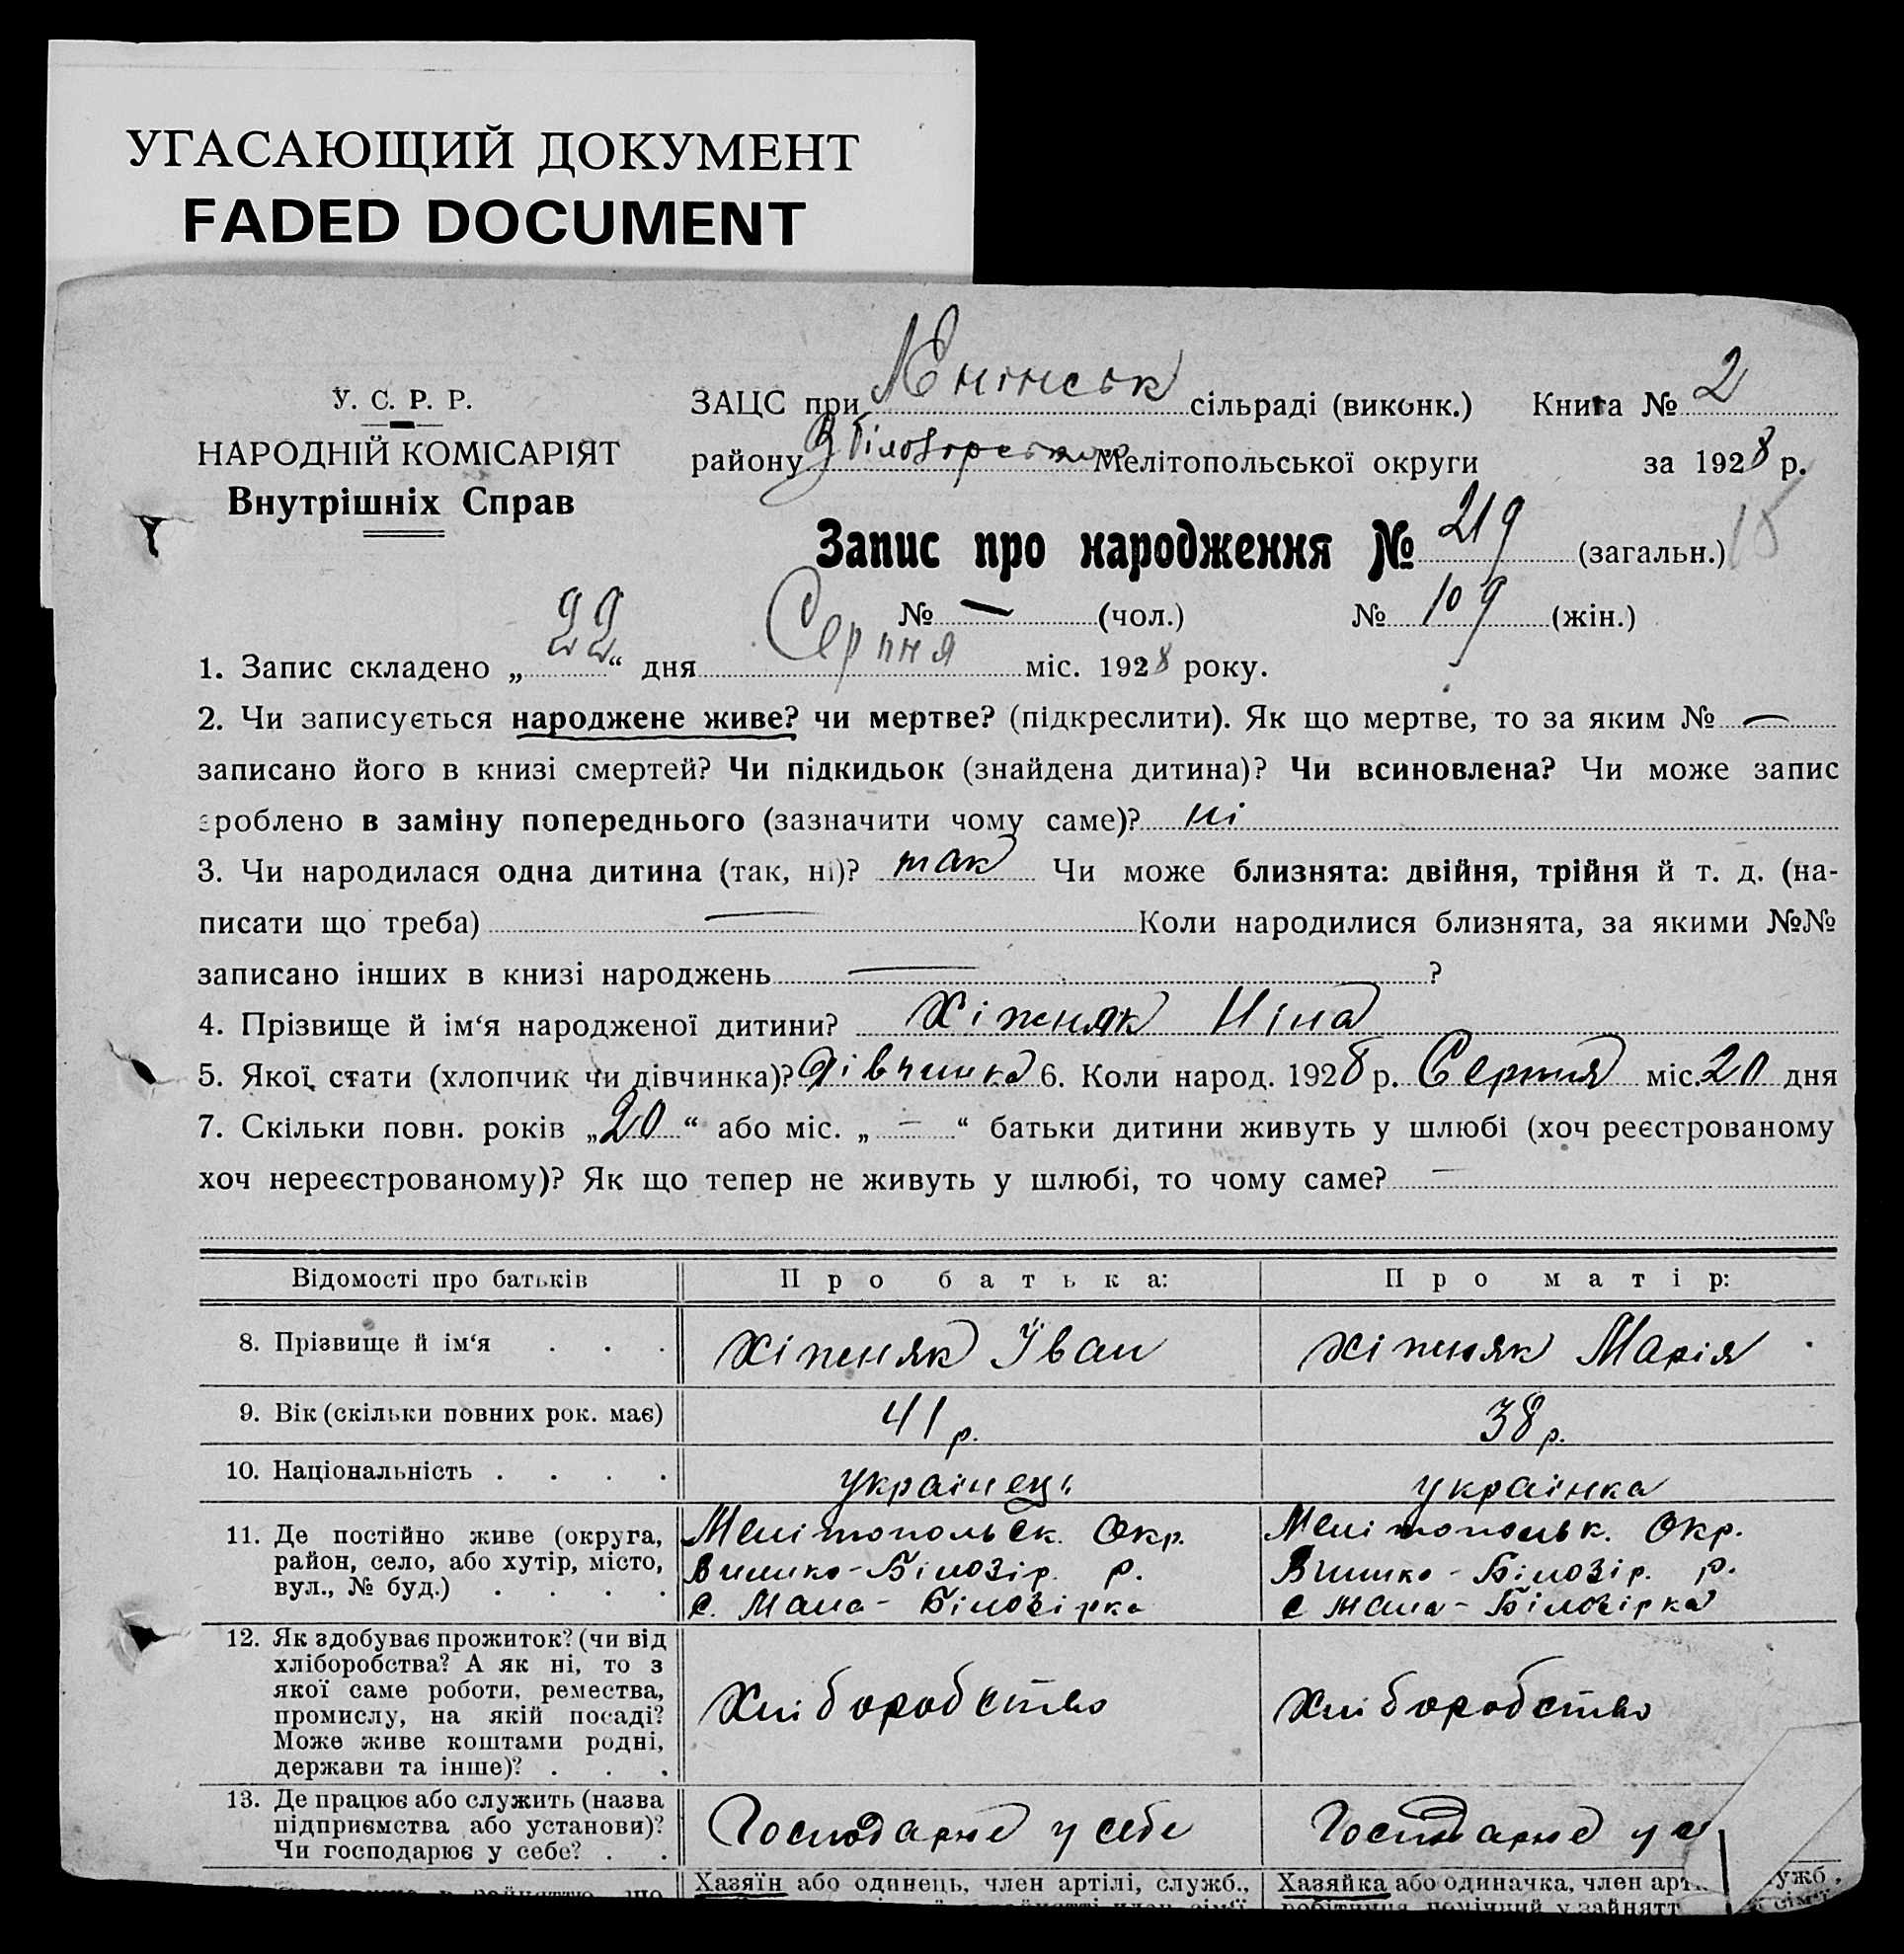 УГАСАЮЩИЙ ДОКУМЕНТ
FADED DOCUMENT
У. С. Р. Р.
НАРОДНІЙ КОМІСАРІЯТ
Внутрішніх Справ
ЗАЦС при Ленінськ сільраді (виконк.) Книга № 2
району Мелітопольської округи за 1928 р.
Запис про народження № 219 (загальн.)
№ — (чол.) № 109 (жін.)
1. Запис складено „22“ дня Серпня міс. 1928 року.
2. Чи записується народжене живе? чи мертве? (підкреслити). Як що мертве, то за яким № —
записано його в книзі смертей? Чи підкидьок (знайдена дитина)? Чи всиновлена? Чи може запис
зроблено в заміну попереднього (зазначити чому саме)? ні
3. Чи народилася одна дитина (так, ні)? так Чи може близнята: двійня, трійня й т. д. (на-
писати що треба) — Коли народилися близнята, за якими №№
записано інших в книзі народжень — ?
4. Прізвище й ім‘я народженої дитини? Хіжняк Ніна
5. Якої стати (хлопчик чи дівчинка)? Дівчинка 6. Коли народ. 1928 р. Серпня міс. 20 дня
7. Скільки повн. років „20“ або міс. „—“ батьки дитини живуть у шлюбі (хоч реєстрованому
хоч нереєстрованому)? Як що тепер не живуть у шлюбі, то чому саме? —
Відомості про батьків Про батька: Про матір:
8. Прізвище й ім‘я . . . Хіжняк Іван Хіжняк Марія
9. Вік (скільки повних рок. має) 41 р. 38 р.
10. Національність . . . . українець українка
11. Де постійно живе (округа,
район, село, або хутір, місто,
вул., № буд.) . . . .
Мелітопольск. Окр.
Вишко-Білозір. р.
с. Мала-Білозірка
Мелітопольк. Окр.
Вишко-Білозір. р.
с Мала-Білозірка
12. Як здобуває прожиток? (чи від
хліборобства? А як ні, то з
якої саме роботи, ремества,
промислу, на якій посаді?
Може живе коштами родні,
держави та інше)? . . .
Хліборобство
Хліборобство
13. Де працює або служить (назва
підприємства або установи)?
Чи господарює у себе? . .
Господарює у себе
Господарює у се
Хазяїн або одинець, член артілі, служб.,
Хазяйка або одиначка, член арт